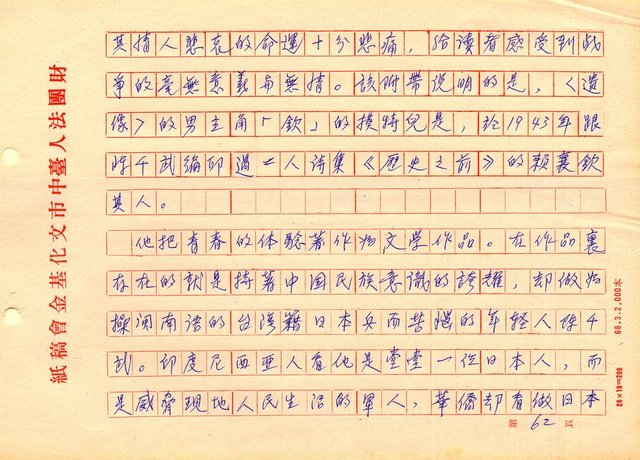 其情人悲哀的命運十分悲痛，给读者感受到战
争的毫無意義與無情。該附帶说明的是，〈遺
像〉的男主角「欽」的模特兒是，於1943年跟
陈千武編印過二人詩集《歷史之前》的賴襄欽
其人。
他把青春的体驗著作為文学作品。在作品裏
存在的就是持著中国民族意識的誇耀，却做為
操閩南语的台湾籍日本兵而苦惱的年轻人陈千
武。印度尼西亜人看他是堂堂一位日本人，而
是威脅現地人民生活的軍人，華僑却看做日本
第 62 頁
財團法人臺中市文化基金會稿紙
68.3.2,000本
20×10=200